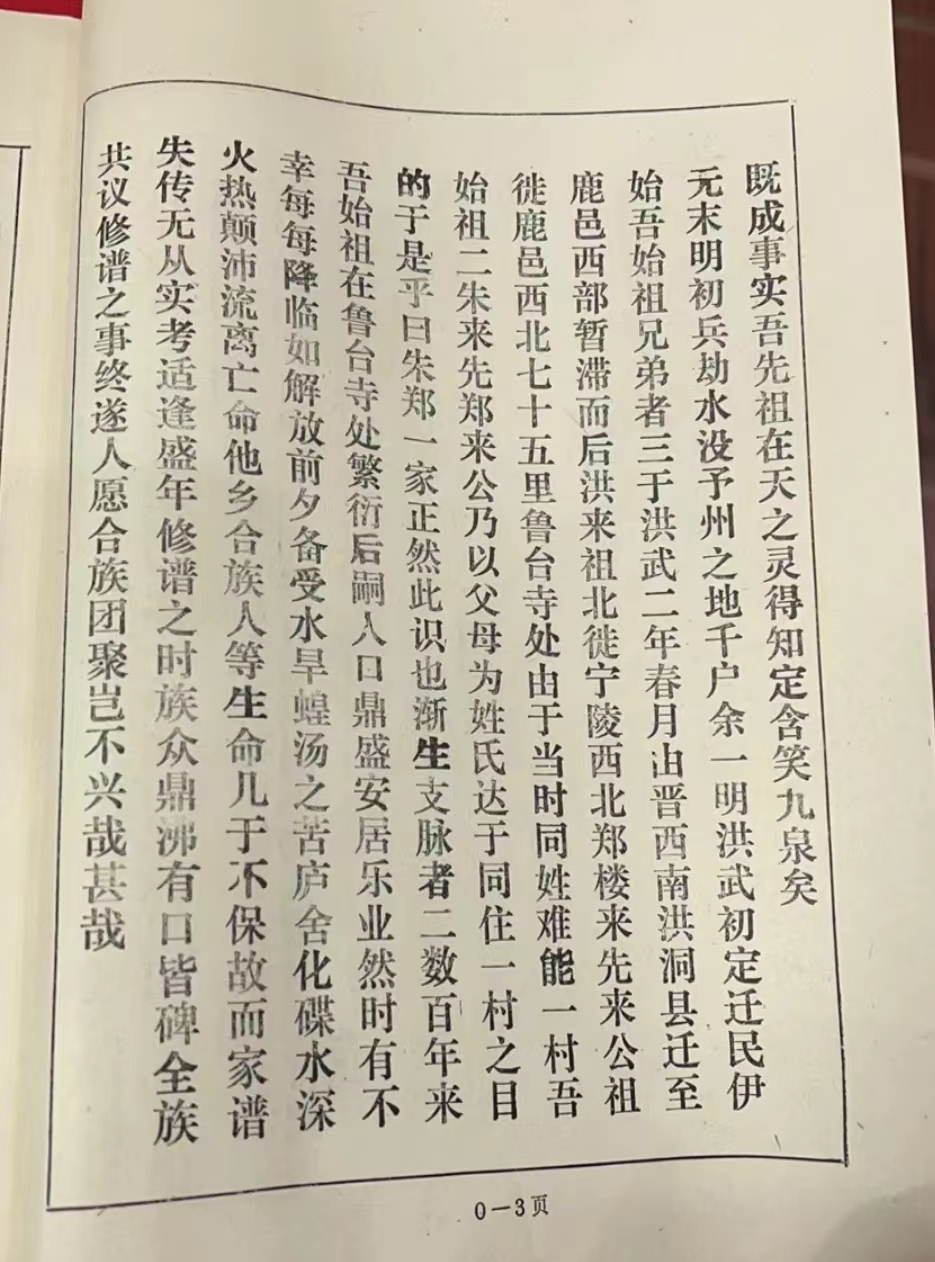 既成事实吾先祖在天之灵得知定含笑九泉矣
元末明初兵劫水没予州之地千户余一明洪武初定迁民伊
始吾始祖兄弟者三于洪武二年春月由晋西南洪洞县迁至
鹿邑西部暂滞而后洪来祖北徙宁陵西北郑楼来先来公祖
徙鹿邑西北七十五里鲁台寺处由于当时同姓难能一村吾
始祖二朱来先郑来公乃以父母为姓氏达于同住一村之目
的于是乎曰朱郑一家正然此识也渐生支脉者二数百年来
吾始祖在鲁台寺处繁衍后嗣人口鼎盛安居乐业然时有不
幸每每降临如解放前夕备受水旱蝗汤之苦庐舍化碟水深
火热颠沛流离亡命他乡合族人等生命几于不保故而家谱
失传无从实考适逢盛年修谱之时族众鼎沸有口皆碑全族
共议修谱之事终遂人愿合族团聚岂不兴哉甚哉
0—3页